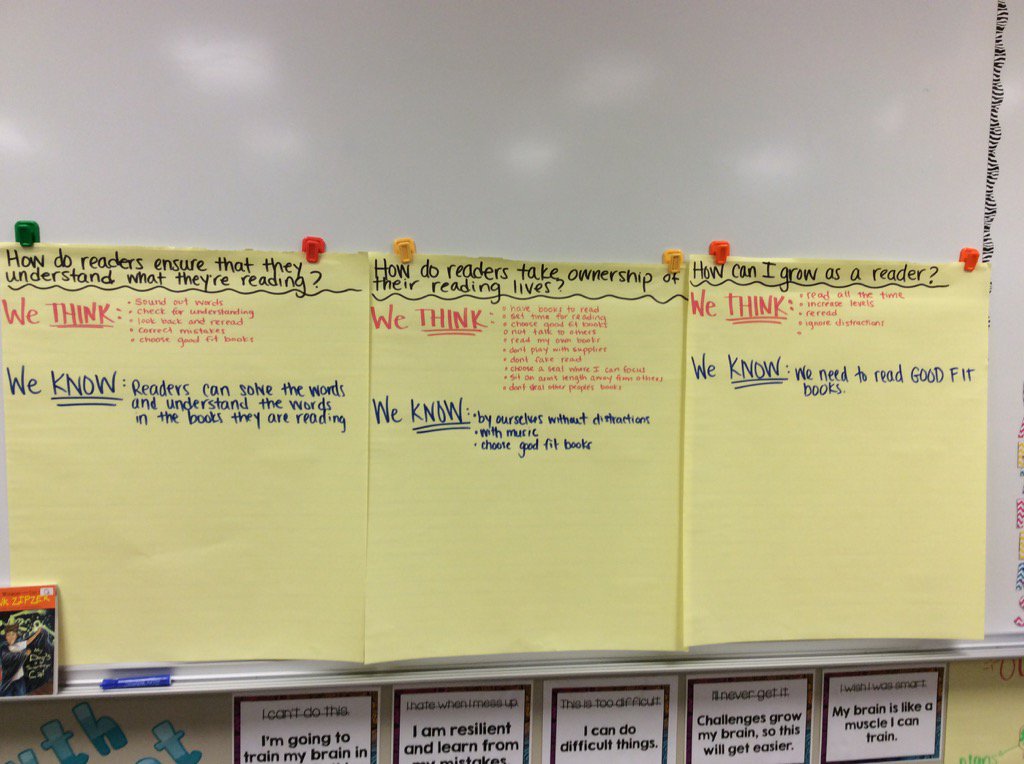 How do readers ensure that they
understand what they're reading?
We THINK:
• Sound out words
• check for understanding
• look back and reread
• correct mistakes
• choose good fit books
We KNOW: Readers can solve the words
and understand the words
in the books they are reading
How do readers take ownership of
their reading lives?
We THINK:
• have books to read
• set time for reading
• choose good fit books
• not talk to others
• read my own books
• don't play with supplies
• don't fake read
• choose a seat where I can focus
• sit an arm's length away from others
• don't steal other peoples books
We KNOW: • by ourselves without distractions
• with music
• choose good fit books
How can I grow as a reader?
We THINK:
• read all the time
• increase levels
• reread
• ignore distractions
•
We KNOW: We need to read GOOD FIT
books.
ZIPZER
I can't do this.
I'm going to
train my brain in
I hate when I mess up.
I am resilient
and learn from
my mistakes
This is too difficult.
I can do
difficult things.
I'll never get it.
Challenges grow
my brain, so this
will get easier.
I wish I was smart.
My brain is like a
muscle I can
train.